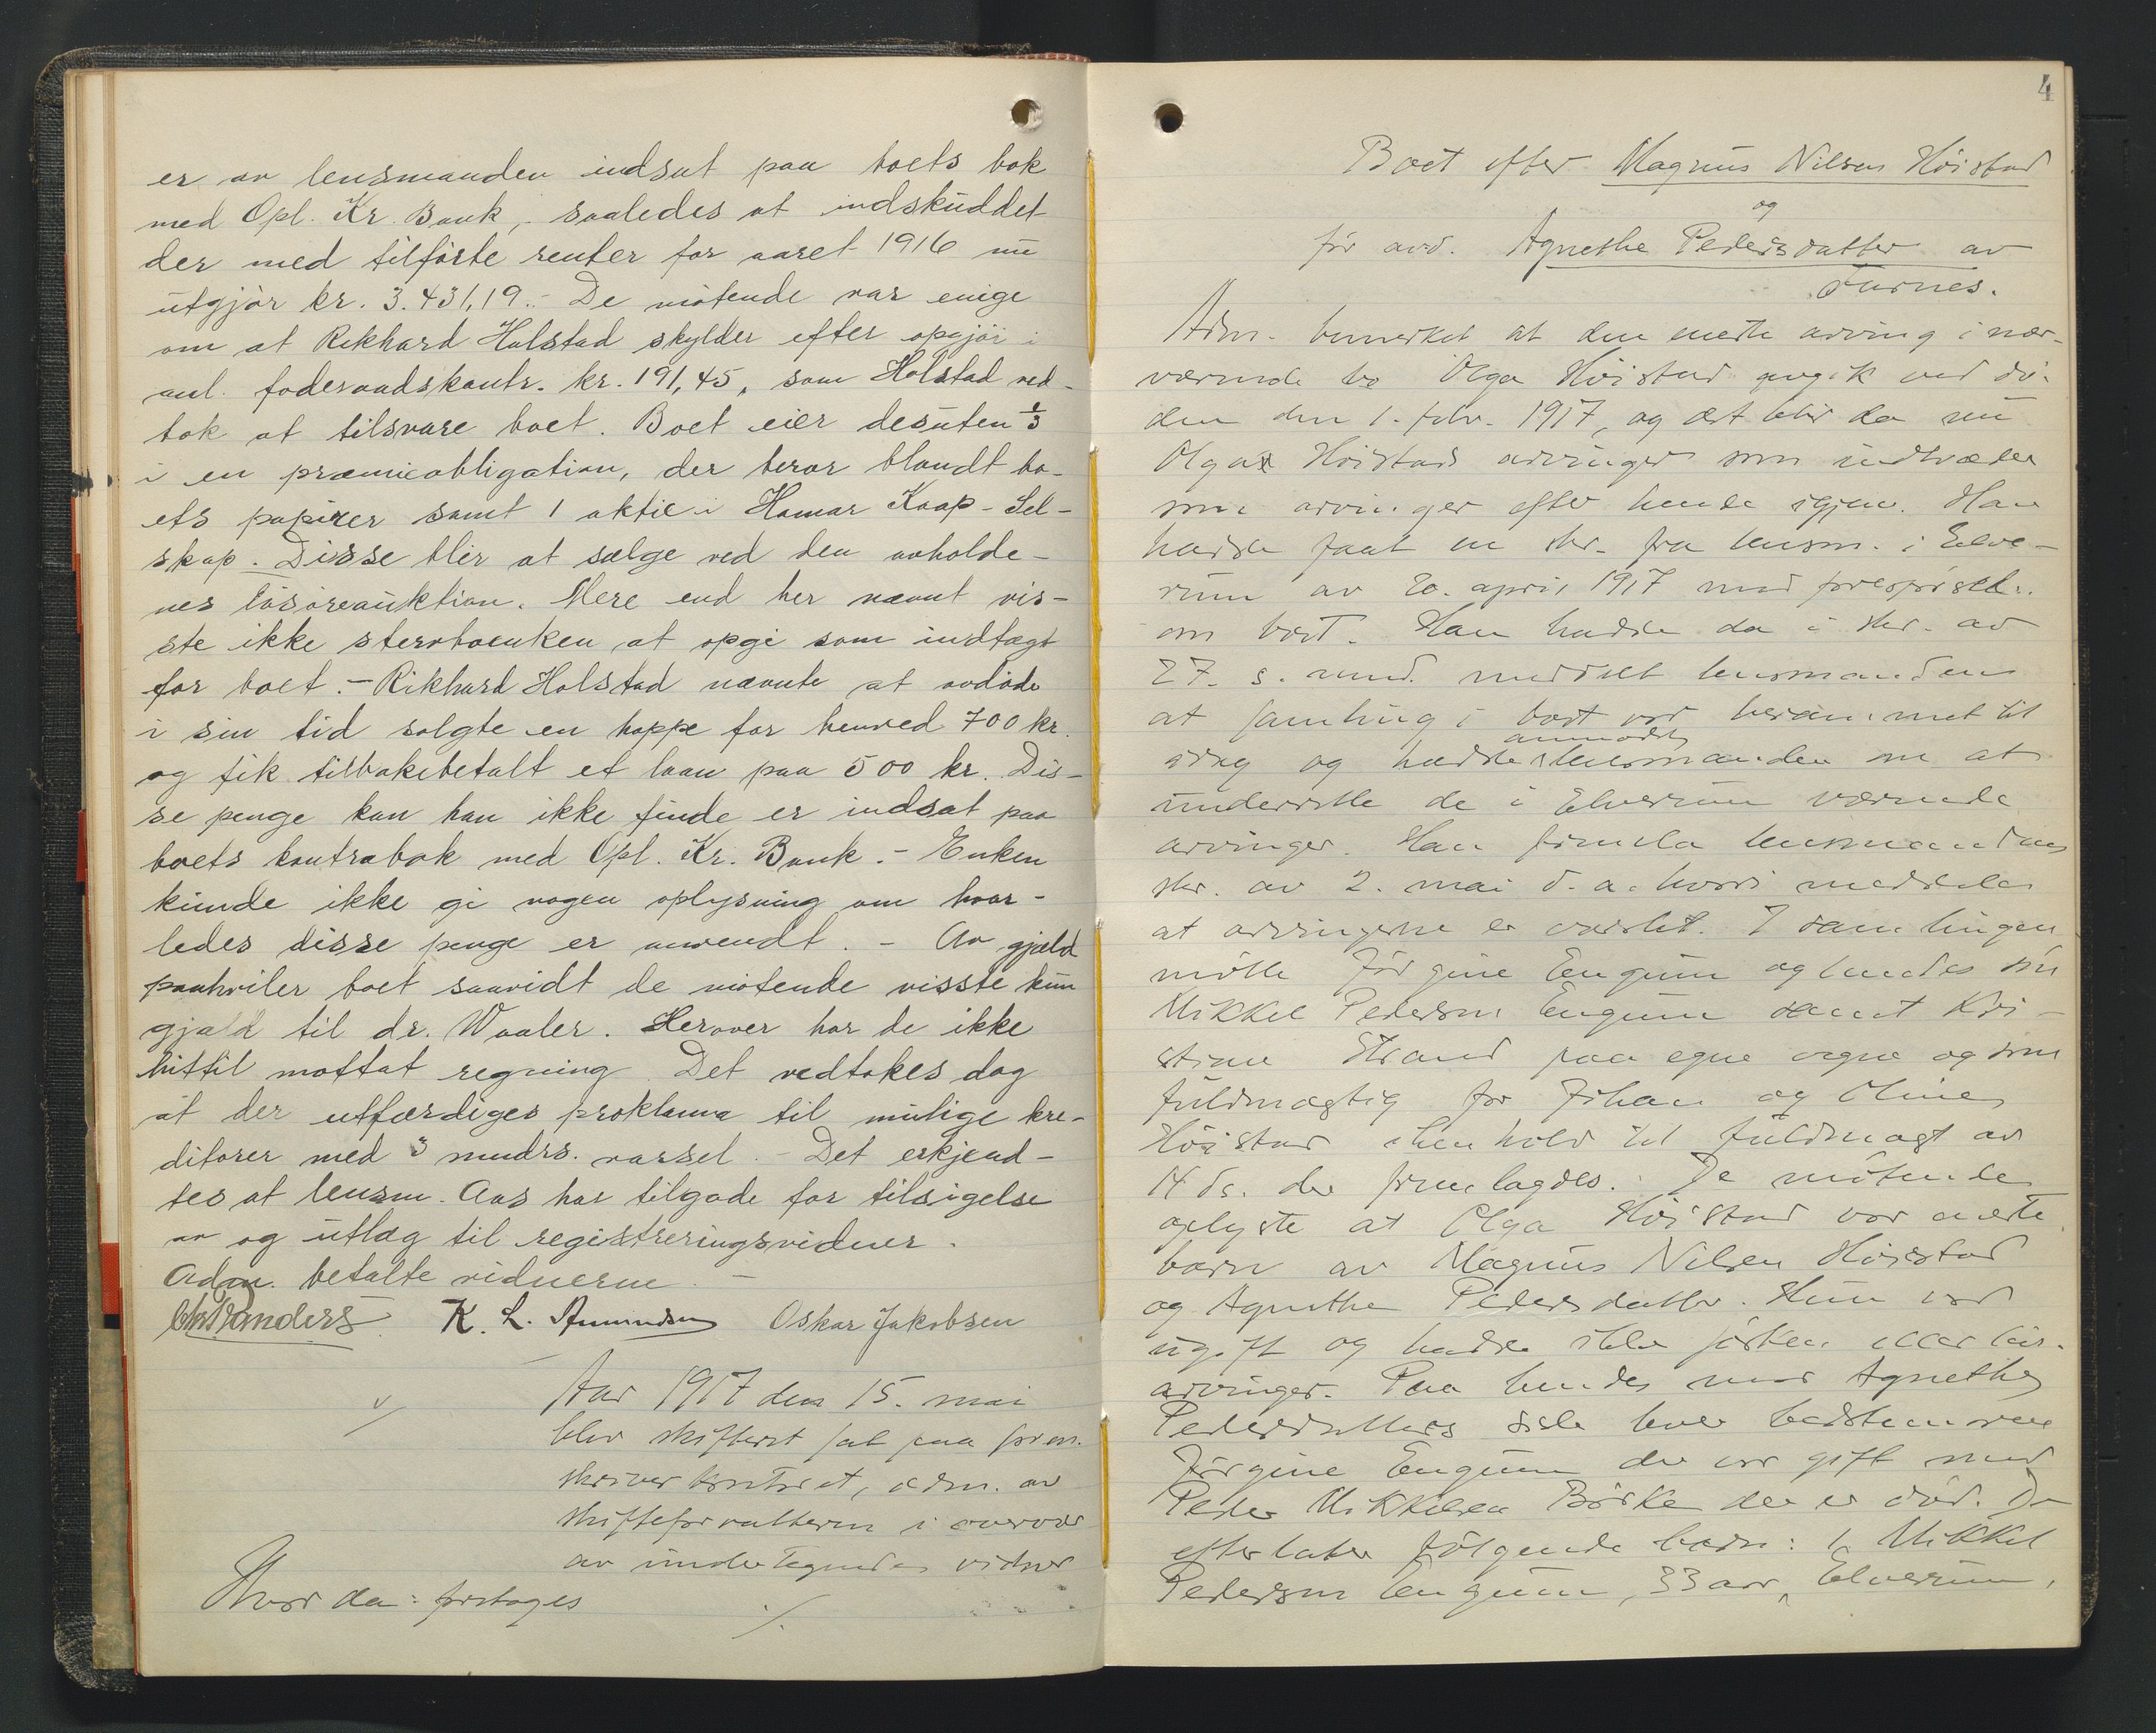 er av lensmanden indsat paa boets bok
med Opl. Kr. Bank, saaledes at indskuddet
der med tilførte renter for aaret 1916 nu
utgjør kr. 3.431,19.- De møtende var enige
om at Rikhard Holstad skylder efter opgjør i
anl. foderaadskontr. kr. 191,45, som Holstad ved-
tok at tilsvare boet. Boet eier desuten ⅓
i en præmieobligation, der beror blandt bo-
ets papirer samt 1 aktie i Hamar Kaap-Sel-
skap. Disse blir at sælge ved den avholde-
nes løsøreauktion. Mere end her nævnt vis-
ste ikke stervboenken at opgi som indtægt
for boet.- Rikhard Holstad nævnte at avdøde
i sin tid solgte en hoppe for henved 700 kr.
og fik tilbakebetalt et laan paa 500 kr. Dis-
se penge kan han ikke finde er indsat paa
boets kontrabok med Opl. Kr. Bank.- Enken
kunde ikke gi nogen oplysning om hvor-
ledes disse penge er anvendt. - Av gjæld
paahviler boet saavidt de møtende visste kun
gjæld til dr. Waaler. Herover har de ikke
hittil mottat regning. Det vedtokes dog
at der utfærdiges proklama til mulige kre-
ditorer med 3 mndrs. varsel.- Det erkjend-
tes at lensm. Aas har tilgode for tilsigelse
av og utlæg til registreringsvidner.
Adm. betalte vidnerne. -
K. L. Amundsen Oskar Jakobsen
Aar 1917 den 15. mai
blev skifteret sat paa soren-
skriverkontoret, adm. av
skifteforvalteren i overvær
av undertegnede vidner
Hvor da: foretages
./.
4
Boet efter Magnus Nilsen Höistad
og
før avd. Agnethe Pedersdatter av
Furnes.
Adm. bemerket at den eneste arving i nær-
værende bo Olga Höistad avgik ved dø-
den den 1. febr. 1917, og det blir da nu
Olga Höistads arvinger som indtræder
som arvinger efter hende igjen. Han
hadde faat en skr. fra lensm. i Elve-
rum av 20. april 1917 med forespørsel
om boet. Han hadde da i skr. av
27. s. mnd. meddelt lensmanden
at samling i boet var berammet til
idag og hadde anmodet lensmanden om at
underrette de i Elverum værende
arvinger. Han fremla lensmandens
skr. av 2. mai d. a. hvori meddeles
at arvingerne er varslet. I samlingen
møtte Jørgine Engum og hendes søn
Mikkel Pedersen Engum samt Kri-
stine Strand paa egne vegne og som
fuldmægtig for Johan og Oline
Höistad i henhold til fuldmagt av
14 ds. der fremlagdes. De møtende
oplyste at Olga Höistad var eneste
barn av Magnus Nilsen Höistad
og Agnethe Pedersdatter. Hun var
ugift og hadde ikke søsken eller livs-
arvinger. Paa hendes mor Agnethe
Pedersdatters side lever bedstemoren
Jørgine Engum der var gift med
Peder Mikkelsen Börke der er död. De
efterlater følgende barn: 1 Mikkel
Pedersen Engum, 33 aar, Elverum,